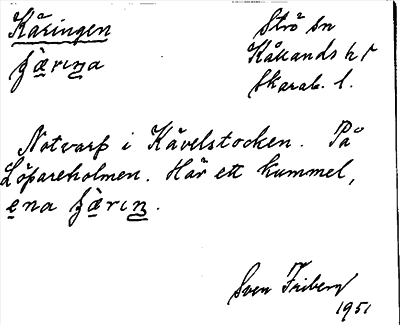 Käringen Strö sn
Kållands hd
Skarab. l.
Notvarp i Kävelstocken. På
Löpareholmen. Här ett kummel,
Sven Friberg
1951